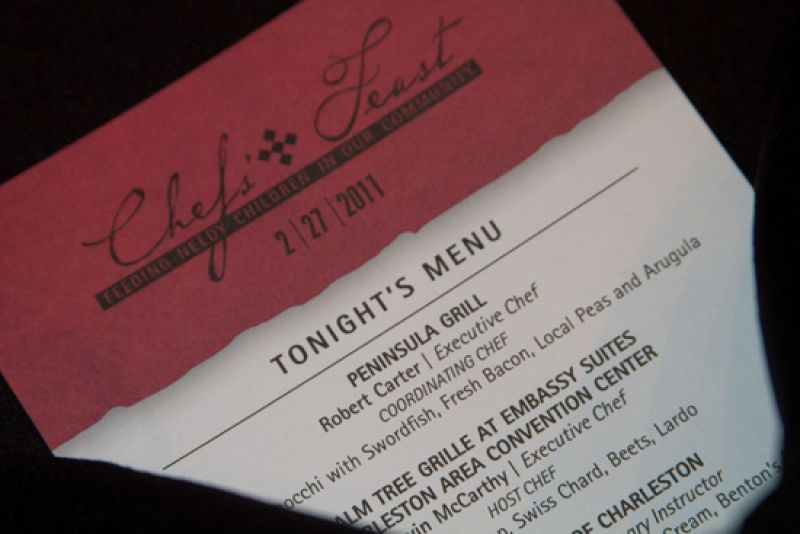 Chefs' Feast
FEEDING NEEDY CHILDREN IN OUR COMMUNITY
2|27|2011
TONIGHT'S MENU
PENINSULA GRILL
Robert Carter | Executive Chef
COORDINATING CHEF
occhi with Swordfish, Fresh Bacon, Local Peas and Arugula
ALM TREE GRILLE AT EMBASSY SUITES
RLESTON AREA CONVENTION CENTER
vin McCarthy | Executive Chef
HOST CHEF
Swiss Chard, Beets, Lardo
OF CHARLESTON
ry Instructor
Cream, Benton's